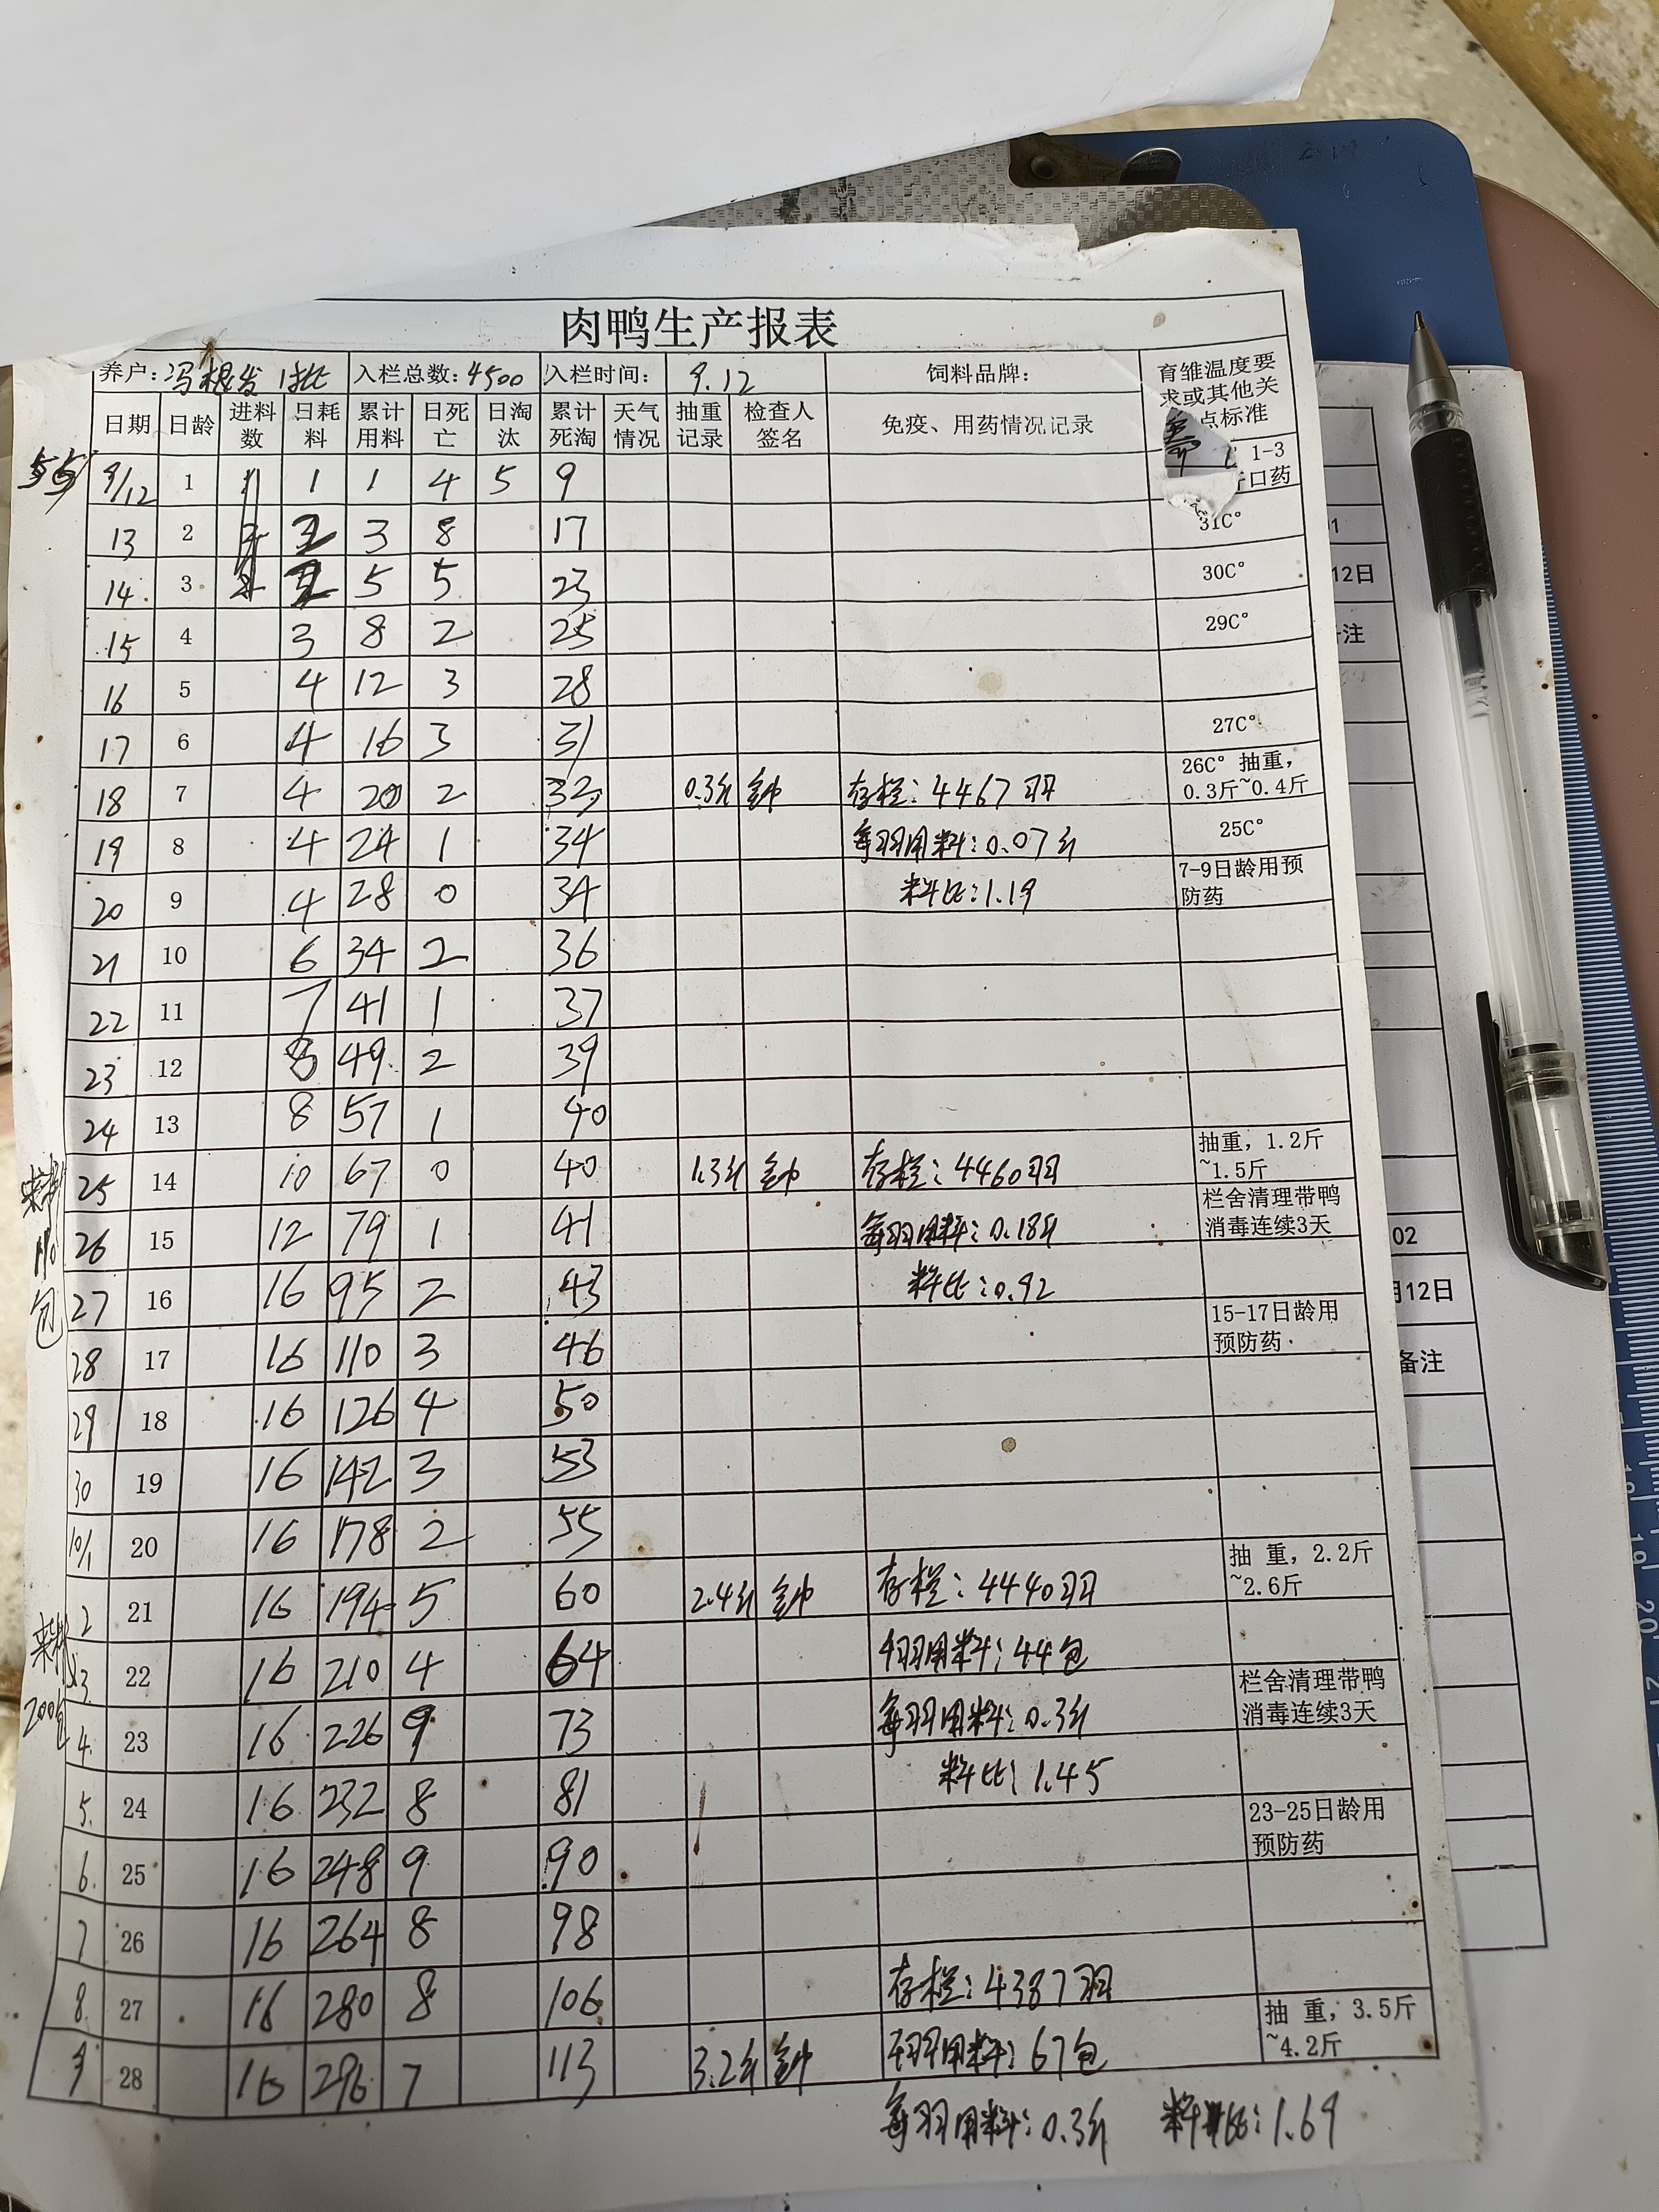 肉鸭生产报表
养户: 冯根发 1批 入栏总数: 4500 入栏时间: 9.12 饲料品牌: 育雏温度要求或其他关 点标准
日期 日龄 进料数 日耗料 累计用料 日死亡 日淘汰 累计死淘 天气情况 抽重记录 检查人签名 免疫、用药情况记录
9/12 1 1 1 1 4 5 9 1-3 口药
13 2 2 3 8 17 31C°
14 3 2 5 5 23 30C°
15 4 3 8 2 25 29C°
16 5 4 12 3 28
17 6 4 16 3 31 27C°
18 7 4 20 2 32 0.3斤 存栏: 4467羽 26C° 抽重, 0.3斤~0.4斤
19 8 4 24 1 34 每羽用料: 0.07斤 25C°
20 9 4 28 0 34 料比: 1.19 7-9日龄用预防药
21 10 6 34 2 36
22 11 7 41 1 37
23 12 8 49 2 39
24 13 8 57 1 40
25 14 10 67 0 40 1.3斤 存栏: 4460羽 抽重, 1.2斤~1.5斤
26 15 12 79 1 41 每羽用料: 0.18斤 栏舍清理带鸭消毒连续3天
27 16 16 95 2 43 料比: 0.92
28 17 16 110 3 46 15-17日龄用预防药
29 18 16 126 4 50
30 19 16 142 3 53
10/1 20 16 178 2 55
2 21 16 194 5 60 2.4斤 存栏: 4440羽 抽 重, 2.2斤~2.6斤
3 22 16 210 4 64 千羽用料: 44包
4. 23 16 226 9 73 每羽用料: 0.3斤 栏舍清理带鸭消毒连续3天
5. 24 16 232 8 81 料比: 1.45
6. 25 16 248 9 90 23-25日龄用预防药
7 26 16 264 8 98
8. 27 16 280 8 106 存栏: 4387羽
9 28 16 296 7 113 3.2斤 千羽用料: 67包 抽 重, 3.5斤~4.2斤
每羽用料: 0.3斤 料比: 1.69
来料
110
包
来料
200包
12日
注
02
月12日
备注